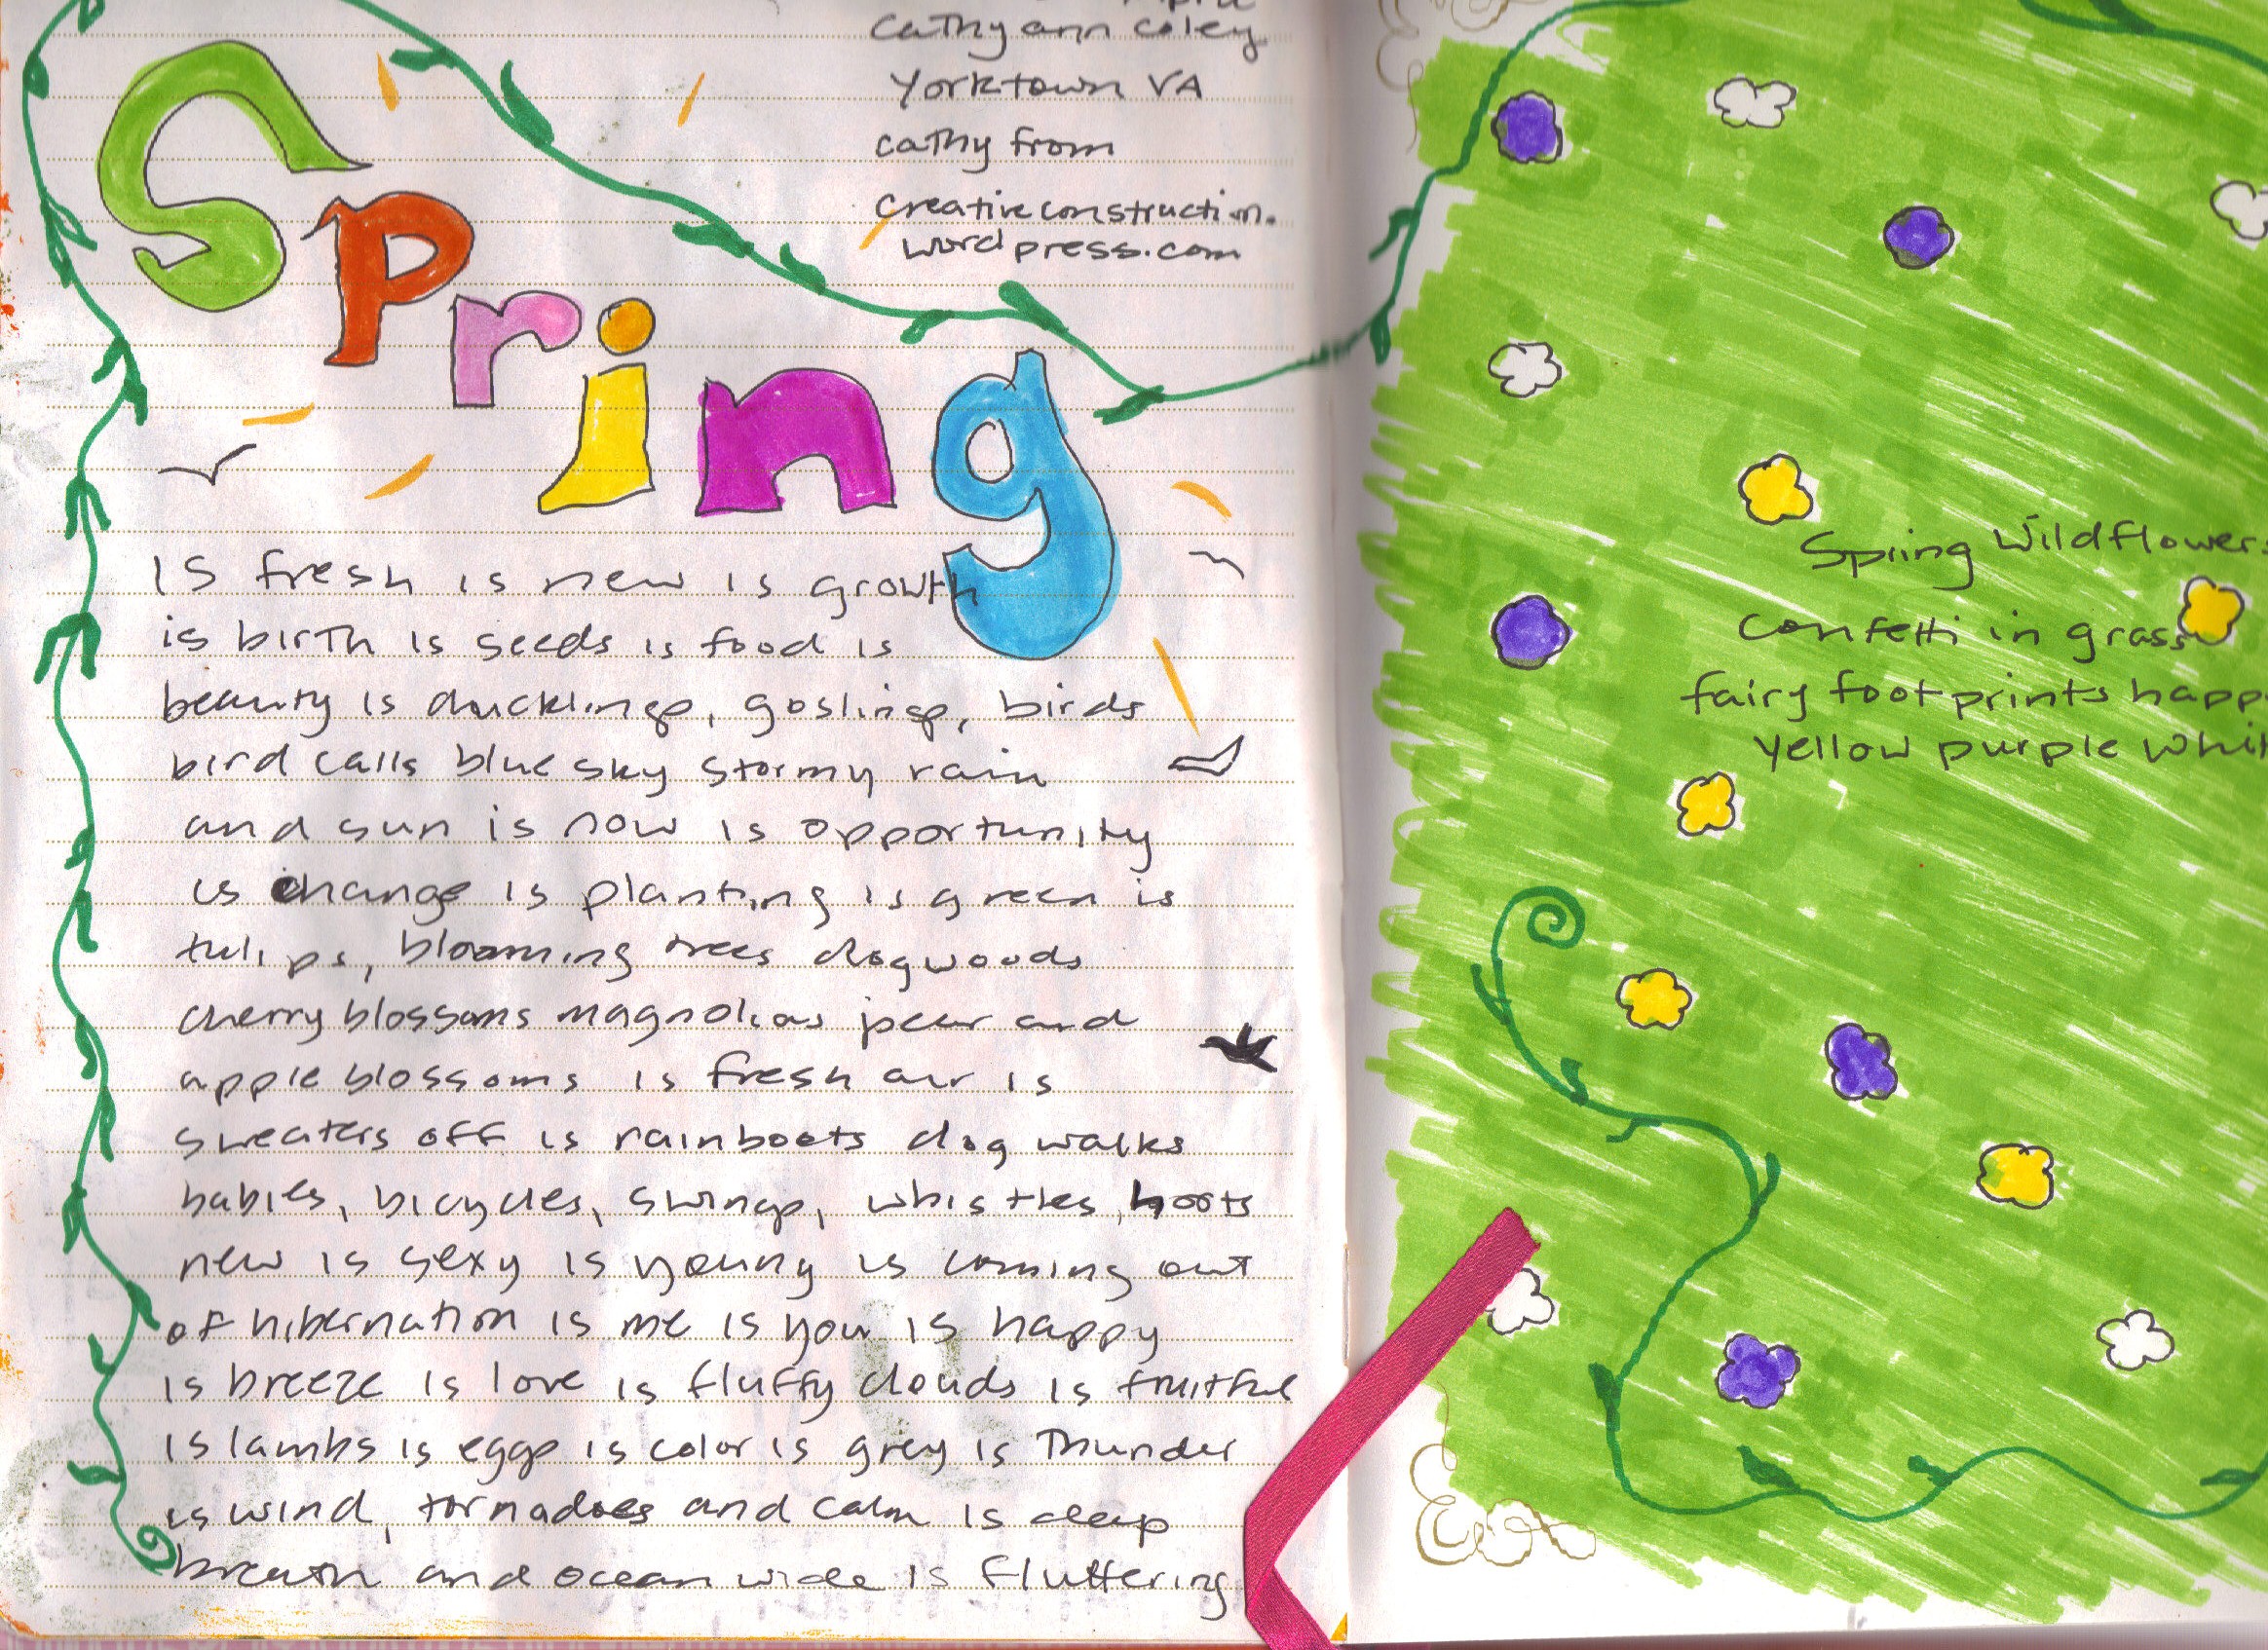 cathy ann coley
Yorktown VA
cathy from
creativeconstruction.
wordpress.com
Spring
is fresh is new is growth
is birth is seeds is food is
beauty is ducklings, goslings, birds
bird calls blue sky stormy rain
and sun is now is opportunity
is change is planting is green is
tulips, blooming trees dogwoods
cherry blossoms magnolias pear and
apple blossoms is fresh air is
sweaters off is rainboots dog walks
babies, bicycles, swings, whistles, hoots
new is sexy is young is coming out
of hibernation is me is you is happy
is breeze is love is fluffy clouds is fruitful
is lambs is eggs is color is grey is Thunder
is wind, tornadoes and calm is deep
breath and ocean wide is fluttering
Spring Wildflowers
Confetti in grass
fairy footprints happ
yellow purple whi